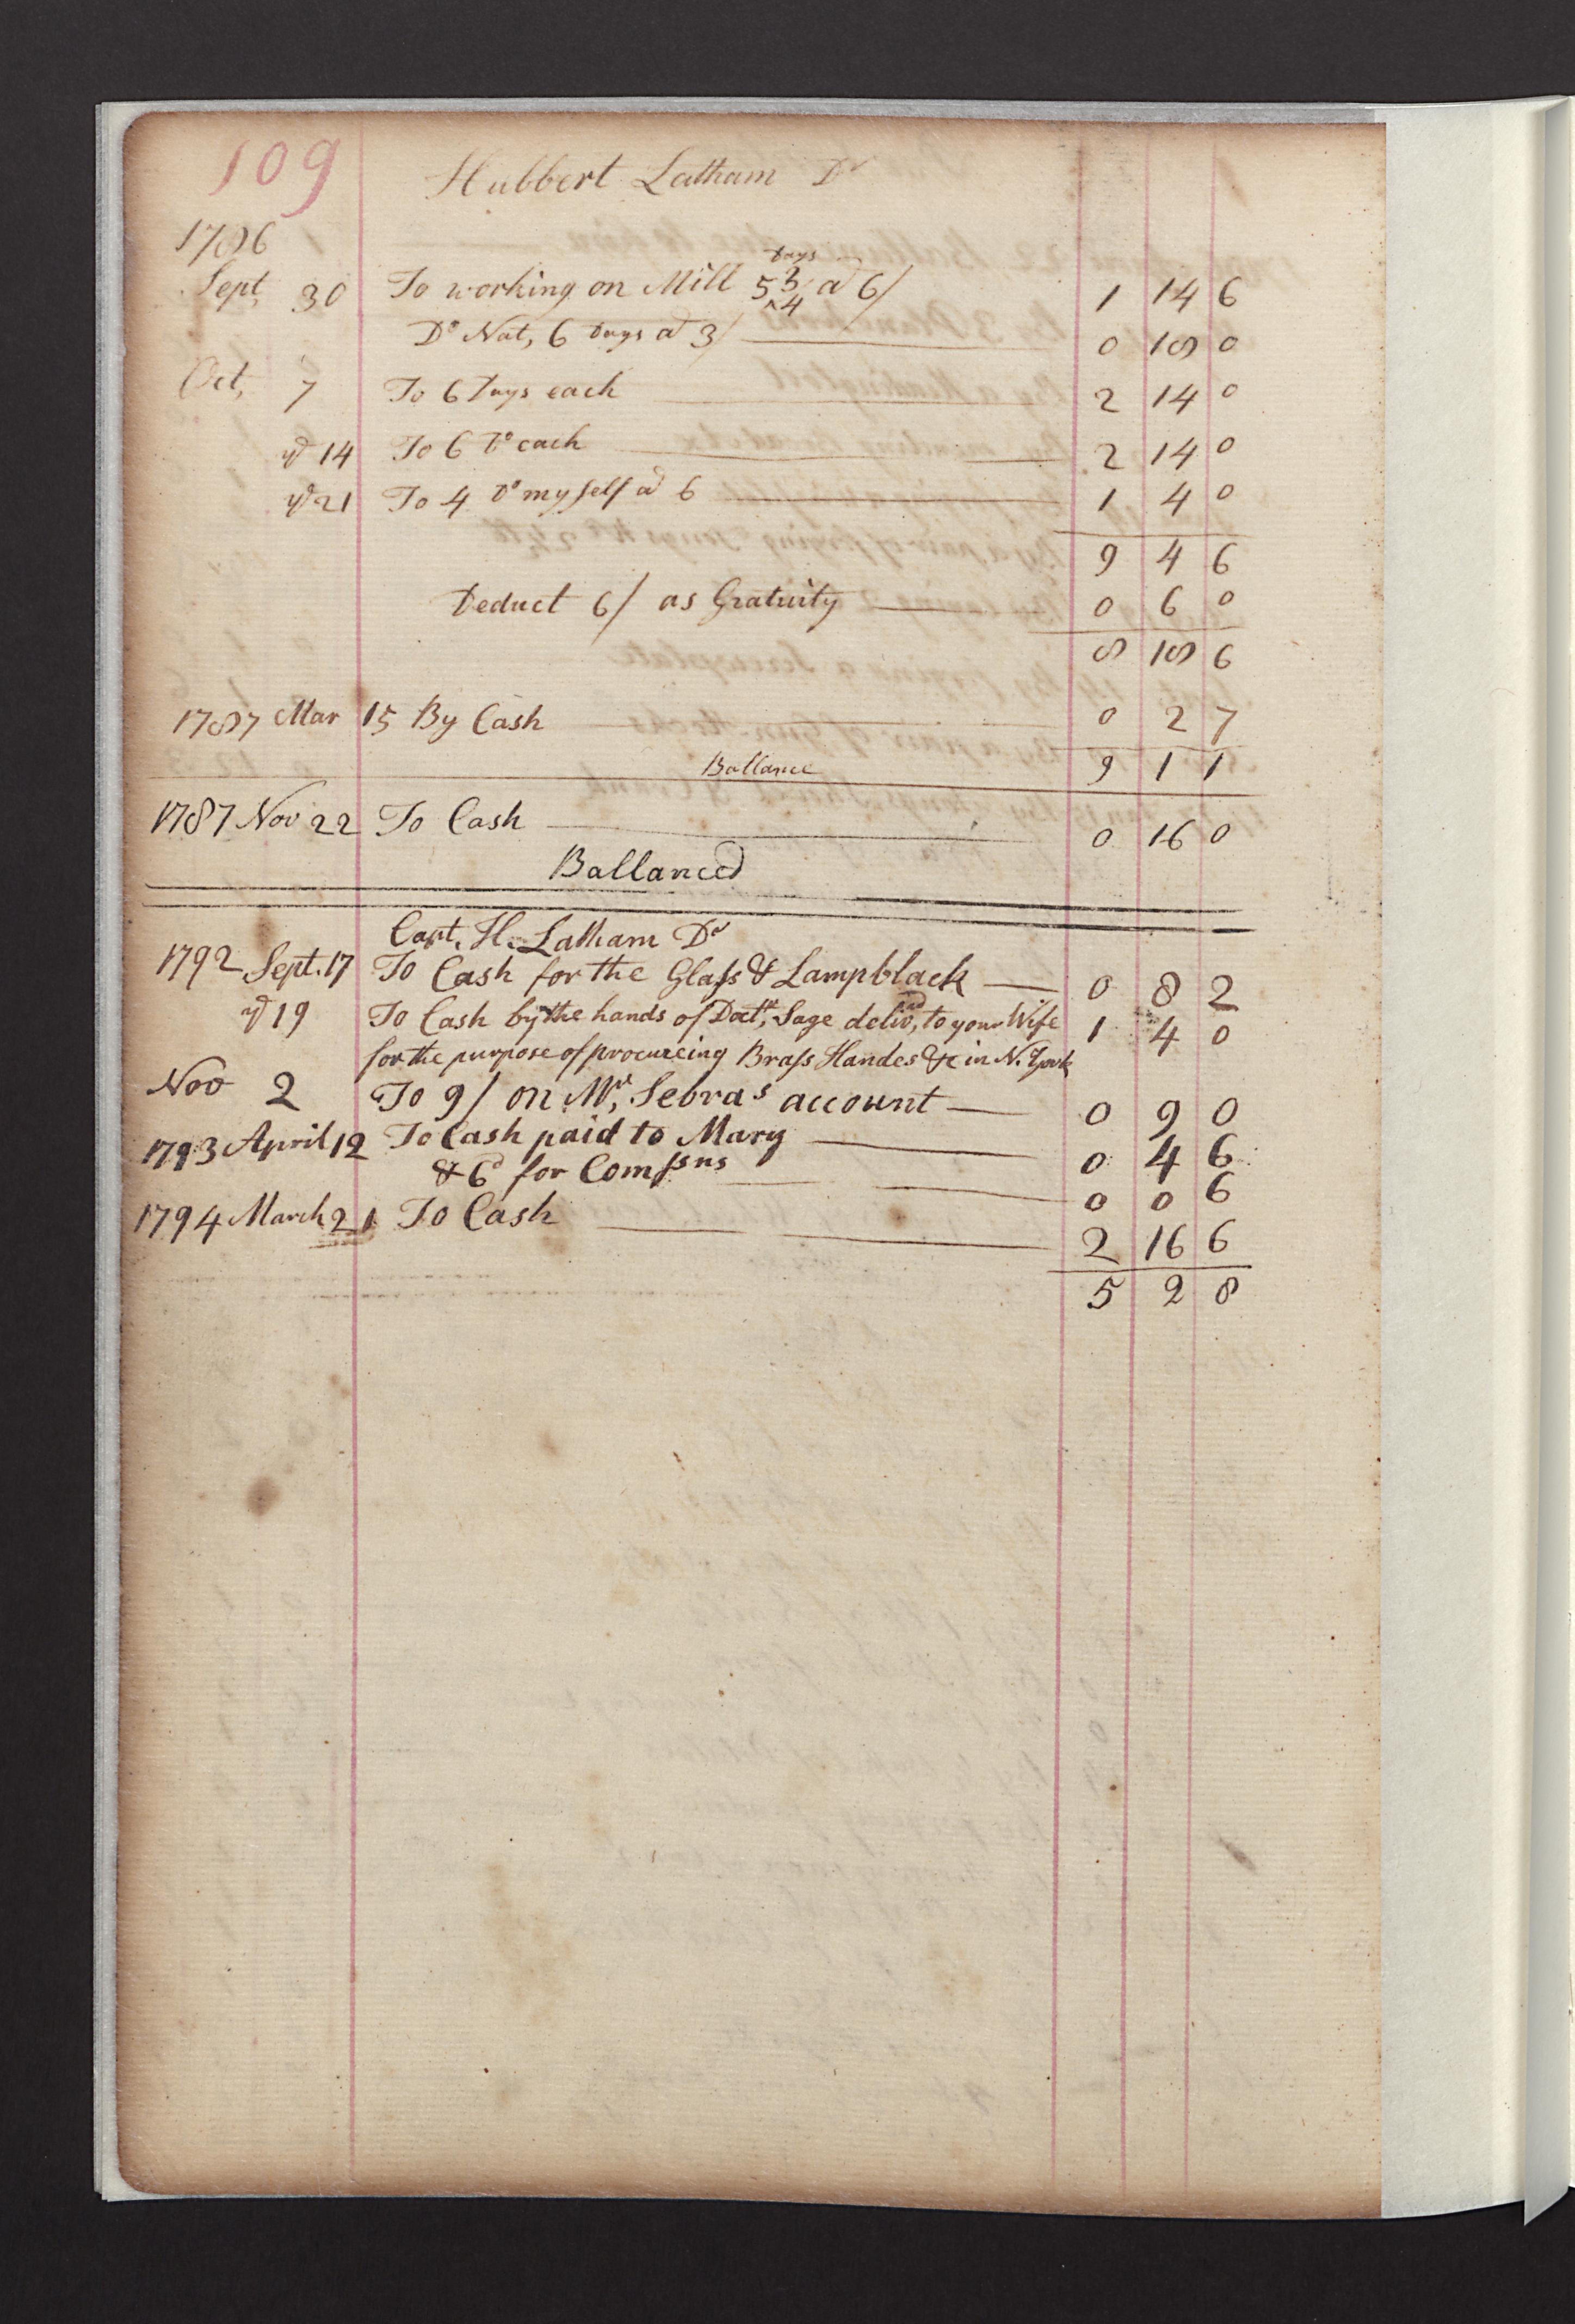 109
Hubbert Latham Dr
1786
Sept, 30 To working on Mill 5 3/4 Days a 6/ 1 14 6
Do Nat, 6 Days a 3/ 0 18 0
Oct, 7 To 6 Days each 2 14 0
yd 14 To 6 Do each 2 14 0
yd 21 To 4 Do myself a 6 1 4 0
9 4 6
Deduct 6/ as Gratuity 0 6 0
8 18 6
1787 Mar 15 By Cash 0 2 7
Ballance 9 1 1
1787 Nov 22 To Cash 0 16 0
Ballanced
Capt. H. Latham Dr
1792 Sept. 17 To Cash for the Glass & Lampblack 0 8 2
yd 19 To Cash by the hands of Doctr, Sage delivd, to your Wife 1 4 0
for the purpose of procureing Brass Handes &c in N. York
Nov 2 To 9/ on Mr, Sebras account 0 9 0
1793 April 12 To Cash paid to Mary 0 4 6
& 6d for Compsns 0 0 6
1794 March 21 To Cash 2 16 6
5 2 8